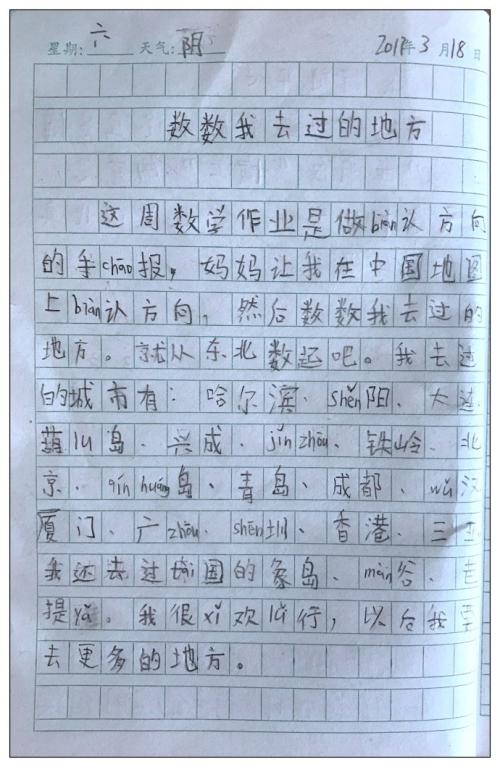 星期: 六 天气: 阴 2017年3月18日
数数我去过的地方
这周数学作业是做biàn认方向
的手chāo报，妈妈让我在中国地图
上biàn认方向，然后数数我去过的
地方。就从东北数起吧。我去过
的城市有：哈尔滨、shěn阳、大连、
葫lú岛、兴成、jǐn zhōu、铁岭、北
京、qín huáng岛、青岛、成都、wǔ汉
厦门、广zhōu、shēn圳、香港、三亚
我还去过tài国的象岛、màn谷、芭
提yǎ。我很xǐ欢lǚ行，以后我要
去更多的地方。